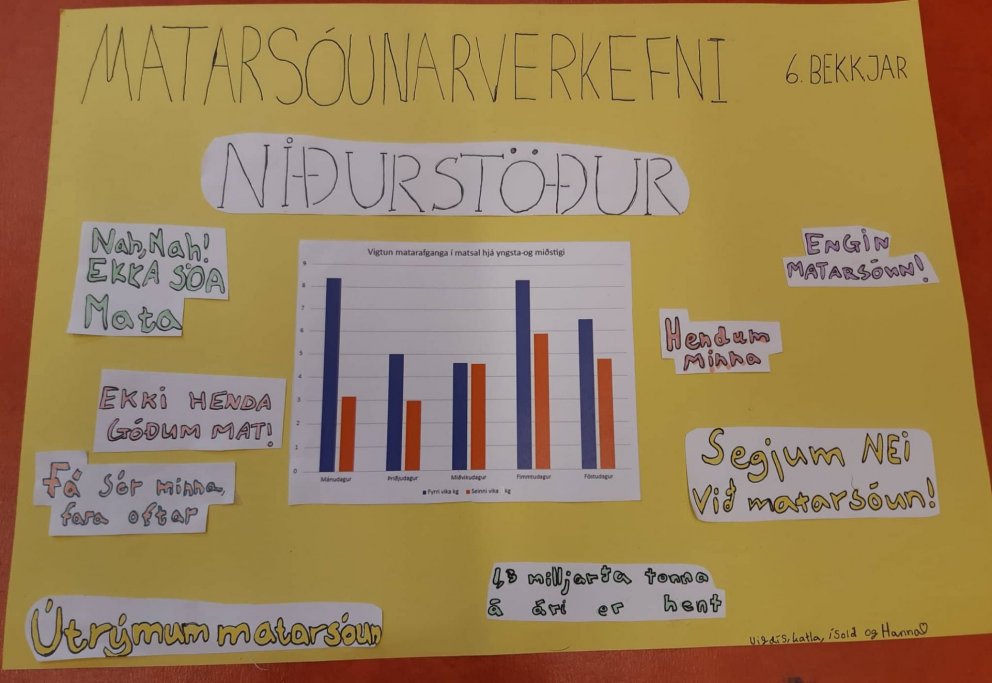 MATARSÓUNARVERKEFNI
6. BEKKJAR
NIÐURSTÖÐUR
Nah, Nah!
EKKA SÓA
Mata
EKKI HENDA
GÓÐUM MAT!
Fá sér minna,
fara oftar
Útrýmum matarsóun
Vigtun matarafganga í matsal hjá yngsta-og miðstigi
9
8
7
6
5
4
3
2
1
0
Mánudagur Þriðjudagur Miðvikudagur Fimmtudagur Föstudagur
Fyrri vika kg Seinni vika kg
ENGIN
MATARSÓUN!
Hendum
minna
Segjum NEI
við matarsóun!
1,3 milljarta tonna
á ári er hent
Vigdís, Katla, ísold og Hanna♡